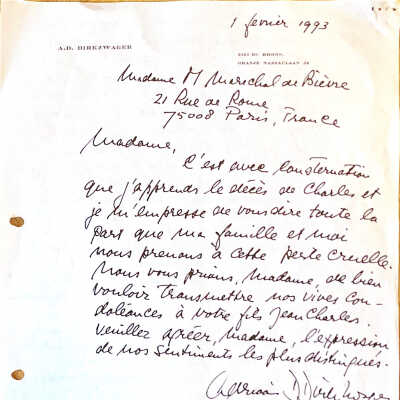 1 février 1993
A.D. DIRKZWAGER
ORANJE NASSAULAAN
Madame M Maréchal de Bièvre
21 Rue de Rome
75008 Paris, France
Madame,
C'est avec consternation
que j'apprends le décès de Charles et
je m'empresse de vous dire toute la
part que ma famille et moi
nous prenons à cette perte cruelle.
Nous vous prions, Madame, de bien
vouloir transmettre nos vives con-
doléances à votre fils Jean Charles.
Veuillez agréer, Madame, l'expression
de nos sentiments les plus distingués.